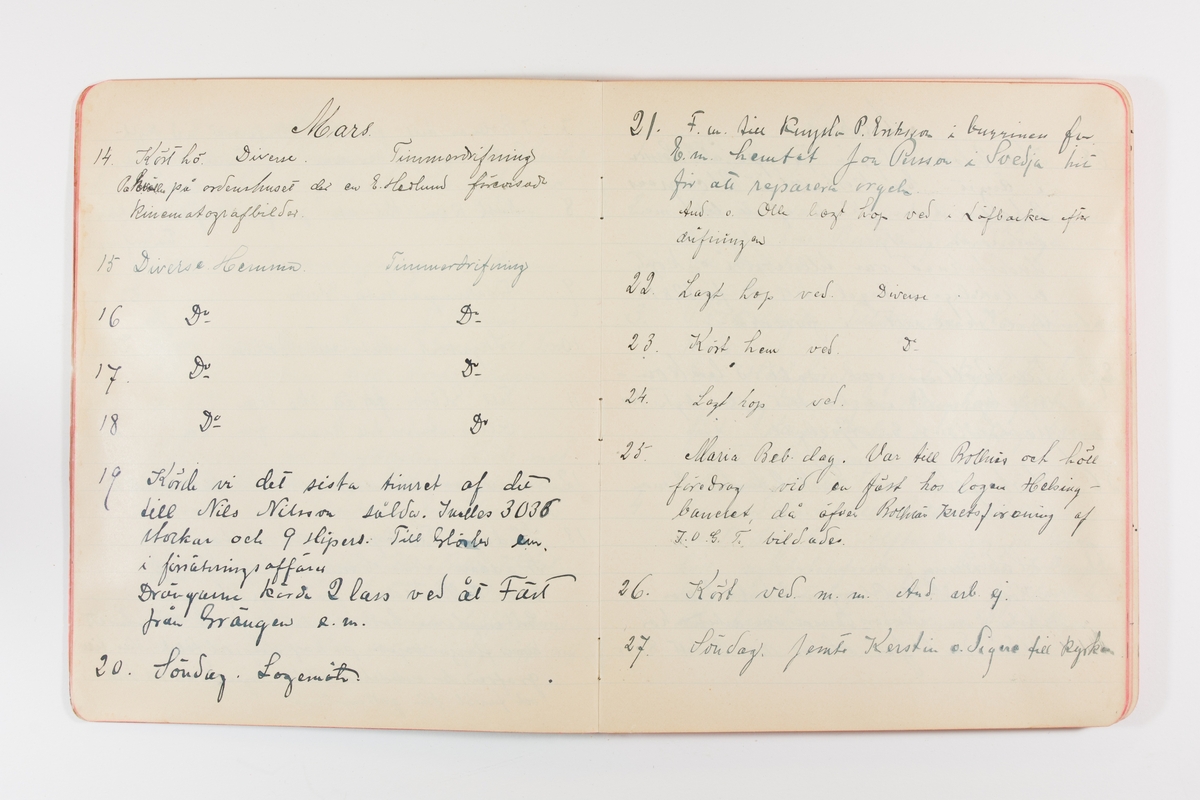 Mars.
14. Kört hö. Diverse. Timmerdrifning
på ordenshuset der en E. Hedlund förevisade
kinematografbilder.
15 Diverse Hemma. Timmerdrifning
16 Do Do
17. Do Do
18 Do Do
19 Körde vi det sista timret af det
till Nils Nilsson sålda. Inalles 3036
stockar och 9 slipers. Till em.
i
Drängarne körde 2 lass ved åt Fäst
från Grängen e.m.
20. Söndag. Logemöte.
21. F.m. till P. Eriksson i
E.m. hemtat Jon Persson i Svedja hit
för att reparera orgeln.
And. o. Olle lagt hop ved i Löfbacken efter
drifningen
22. Lagt hop ved. Diverse.
23. Kört hem ved. Do
24. Lagt hop ved.
25. Maria Beb. dag. Var till Bollnäs och höll
föredrag vid en fäst hos logen Helsing-
baneret, då äfven Bollnäs Kretsförening af
I.O.G.T. bildades.
26. Kört ved m.m. And. arb. ej.
27. Söndag. Jemte Kerstin o. Signe till kyrkan